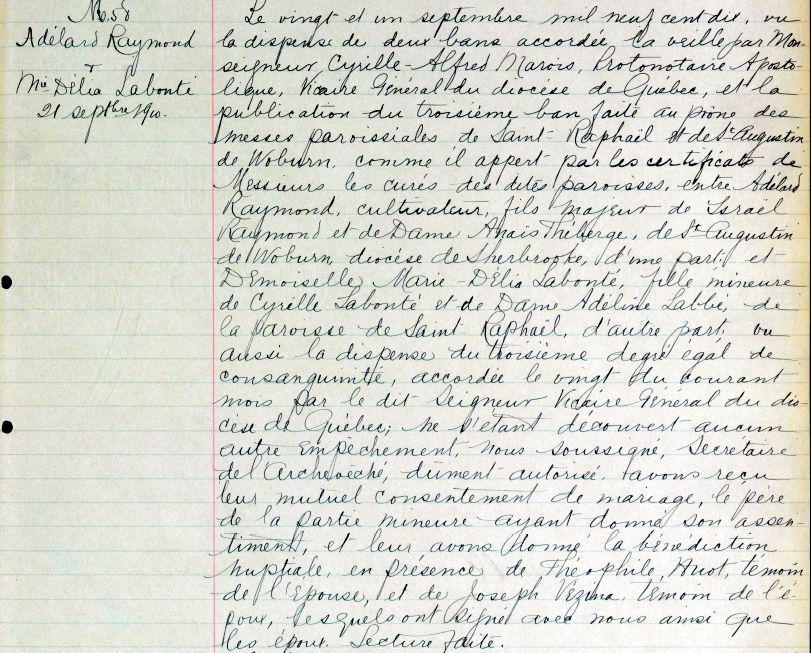 No. 58
Adélard Raymond
&
Mie Délia Labonté
21 septbre 1910.
Le vingt et un septembre mil neuf cent dix, vu
la dispense de deux bans accordée la veille par Mon-
seigneur Cyrille-Alfred Marois, Protonotaire Aposto-
lique, Vicaire Général du diocèse de Québec, et la
publication du troisième ban faite au prône des
messes paroissiales de Saint-Raphaël et de St Augustin
de Woburn, comme il appert par les certificats de
Messieurs les curés des dites paroisses, entre Adélard
Raymond, cultivateur, fils majeur de Israël
Raymond et de Dame Anaïs Théberge, de St Augustin
de Woburn, diocèse de Sherbrooke, d'une part; et
Demoiselle Marie-Délia Labonté, fille mineure
de Cyrille Labonté et de Dame Adéline Labbé, de
la paroisse de Saint Raphaël, d'autre part; vu
aussi la dispense du troisième degré égal de
consanguinité, accordée le vingt du courant
mois par le dit Seigneur Vicaire Général du dio-
cèse de Québec; ne s'étant découvert aucun
autre empêchement, nous soussigné, Secrétaire
de l'Archevêché, dûment autorisé, avons reçu
leur mutuel consentement de mariage, le père
de la partie mineure ayant donné son assen-
timent, et leur avons donné la bénédiction
nuptiale, en présence de Théophile Huot, témoin
de l'épouse, et de Joseph Vézina, témoin de l'é-
poux, lesquels ont signé avec nous ainsi que
les époux. Lecture faite.